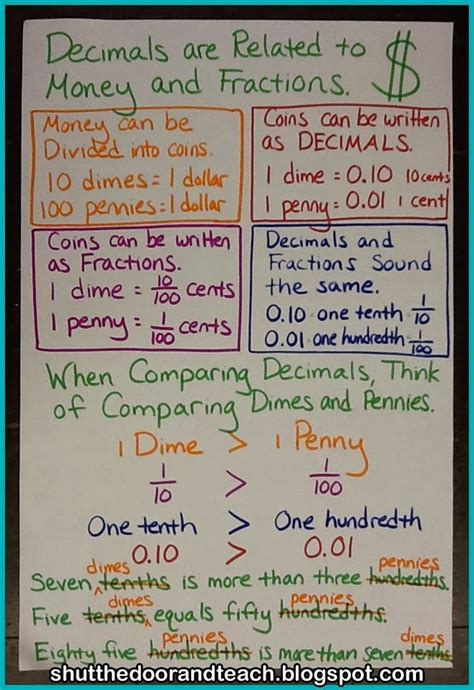 Decimals are Related to $
Money and Fractions.
Money can be
Divided into coins.
10 dimes = 1 dollar
100 pennies = 1 dollar
Coins can be written
as DECIMALS.
1 dime = 0.10 10 cents
1 penny = 0.01 1 cent
Coins can be written
as Fractions.
1 dime = 10/100 cents
1 penny = 1/100 cents
Decimals and
Fractions Sound
the same.
0.10 = one tenth = 1/10
0.01 = one hundredth = 1/100
When Comparing Decimals, Think
of Comparing Dimes and Pennies.
1 Dime > 1 Penny
1/10 > 1/100
One tenth > One hundredth
0.10 > 0.01
dimes pennies
Seven tenths is more than three hundredths.
dimes pennies
Five tenths equals fifty hundredths.
pennies dimes
Eighty five hundredths is more than seven tenths
shutthedoorandteach.blogspot.com